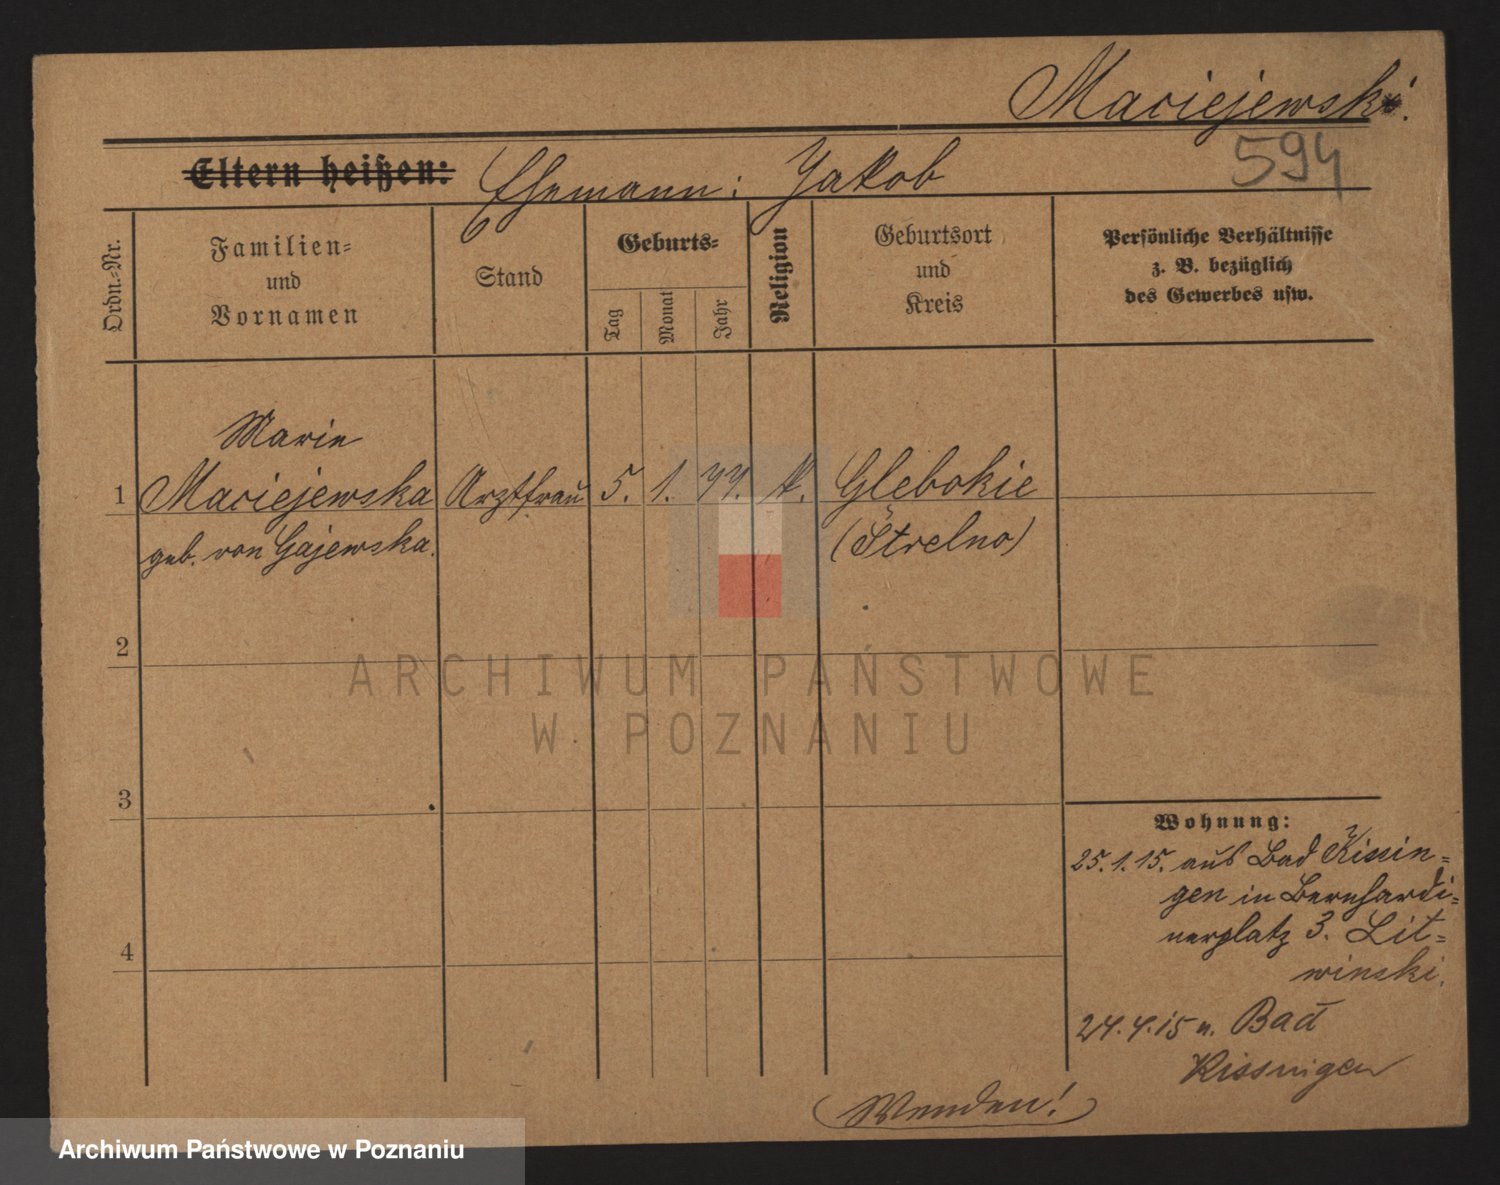 Maciejewski.
594
Eltern heißen: Ehemann: Jakob
Ordn.-Nr.
Familien-
und
Vornamen
Stand
Geburts-
Tag
Monat
Jahr
Religion
Geburtsort
und
Kreis
Persönliche Verhältnisse
z. B. bezüglich
des Gewerbes usw.
Marie
1 Maciejewska Arztfrau 5. 1. 77. k. Glebokie
geb. von Gajewska. (Strelno)
2
ARCHIWUM PAŃSTWOWE
W POZNANIU
3
Wohnung:
25.1.15. aus Bad Kissin-
gen in Bernhardi-
nerplatz 3. Lit-
winski.
4
24.4.15 n. Bad
Kissingen
(Wenden!)
Archiwum Państwowe w Poznaniu